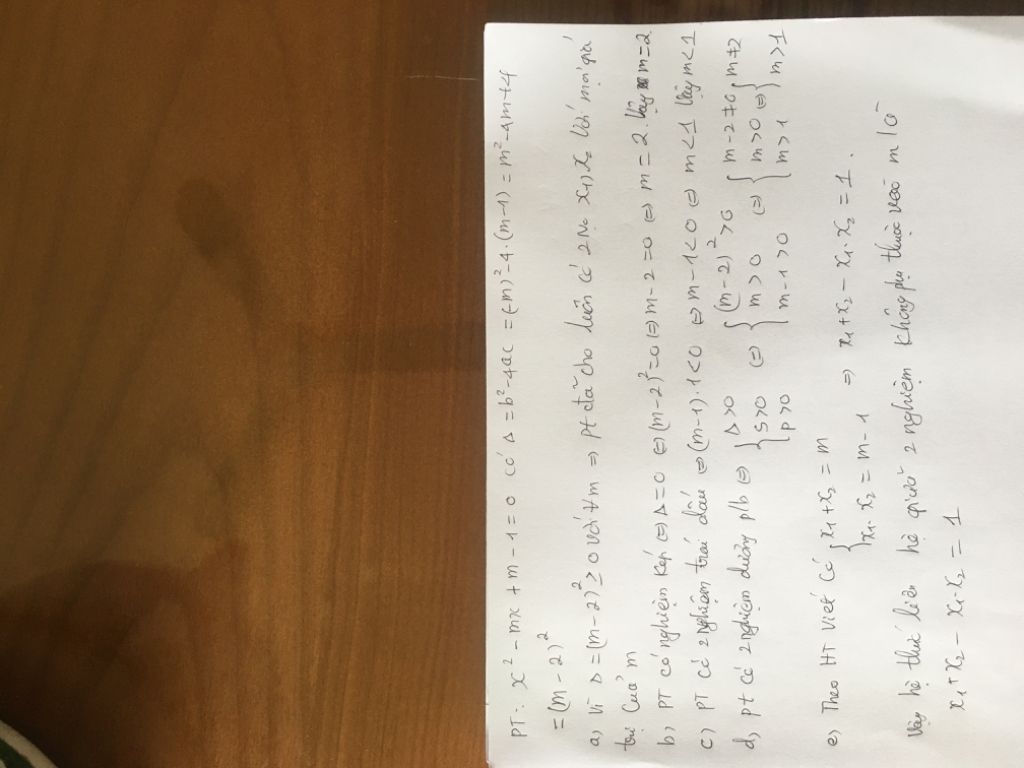 PT: x² - mx + m - 1 = 0 có Δ = b² - 4ac = (-m)² - 4.(m-1) = m² - 4m + 4
= (m - 2)²
a, Vì Δ = (m-2)² ≥ 0 với ∀m ⇒ pt đã cho luôn có 2 No x₁, x₂ với mọi giá
trị của m
b, PT có nghiệm kép ⇔ Δ = 0 ⇔ (m-2)² = 0 ⇔ m - 2 = 0 ⇔ m = 2. Vậy m = 2
c, PT có 2 nghiệm trái dấu ⇔ (m-1).1 < 0 ⇔ m - 1 < 0 ⇔ m < 1 Vậy m < 1
d, pt có 2 nghiệm dương p/b ⇔ { Δ > 0 ; S > 0 ; P > 0 ⇔ { (m-2)² > 0 ; m > 0 ; m - 1 > 0 ⇔ { m - 2 ≠ 0 ; m > 0 ; m > 1 ⇔ { m ≠ 2 ; m > 1
e, Theo HT Viét có { x₁ + x₂ = m ; x₁.x₂ = m - 1 ⇒ x₁ + x₂ - x₁.x₂ = 1.
Vậy hệ thức liên hệ giữa 2 nghiệm không phụ thuộc vào m là
x₁ + x₂ - x₁.x₂ = 1